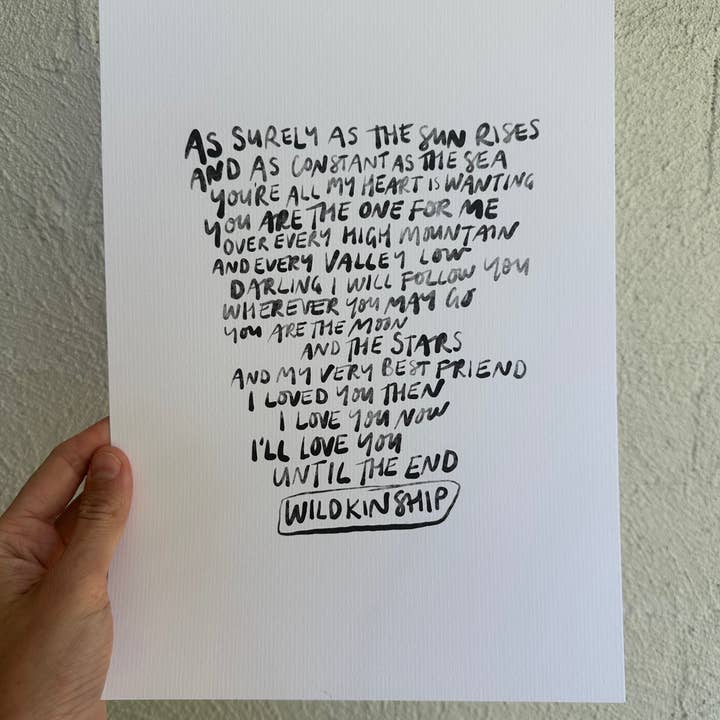 AS SURELY AS THE SUN RISES
AND AS CONSTANT AS THE SEA
YOU'RE ALL MY HEART IS WANTING
YOU ARE THE ONE FOR ME
OVER EVERY HIGH MOUNTAIN
AND EVERY VALLEY LOW
DARLING I WILL FOLLOW YOU
WHEREVER YOU MAY GO
YOU ARE THE MOON
AND THE STARS
AND MY VERY BEST FRIEND
I LOVED YOU THEN
I LOVE YOU NOW
I'LL LOVE YOU
UNTIL THE END
WILDKINSHIP